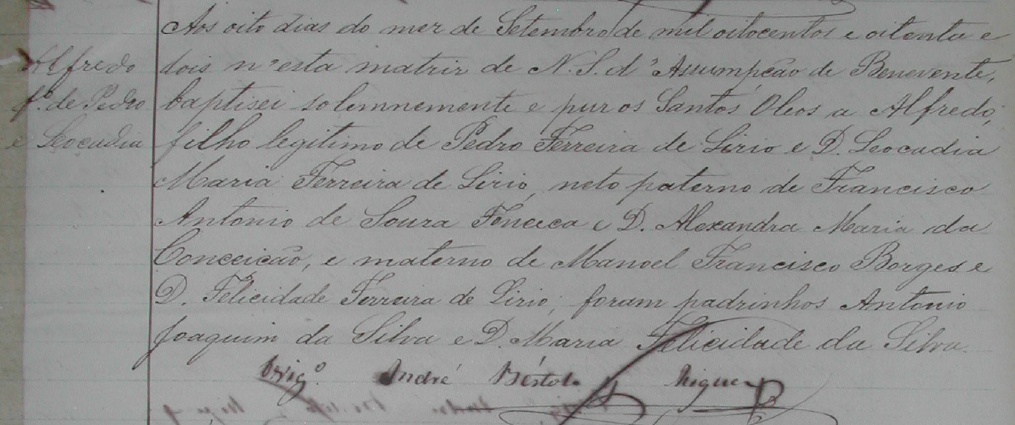 Aos oito dias do mez de Setembro de mil oitocentos e oitenta e
Alfredo
fº. de Pedro
e Leocadia
dois n'esta matriz de N. S. d'Assumpção de Benevente,
baptisei solemnemente e puz os Santos Oleos a Alfredo,
filho legitimo de Pedro Ferreira de Lirio e D. Leocadia
Maria Ferreira de Lirio, neto paterno de Francisco
Antonio de Souza Fonceca e D. Alexandra Maria da
Conceicão, e materno de Manoel Francisco Borges e
D. Felicidade Ferreira de Lirio; foram padrinhos Antonio
Joaquim da Silva e D. Maria Felicidade da Silva.
Vigº. André